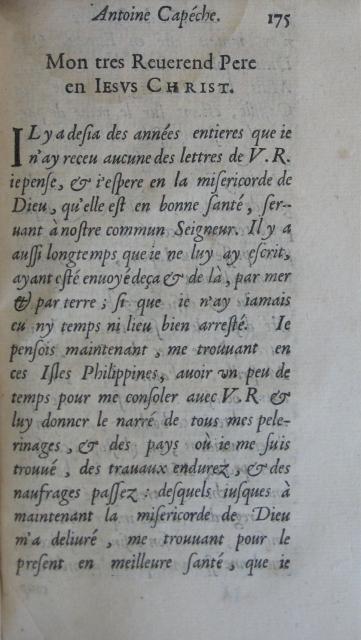 Antoine Capéche. 175
Mon tres Reuerend Pere
en IESVS CHRIST.
IL y a desia des années entieres que ie
n'ay receu aucune des lettres de V. R.
ie pense, & i'espere en la misericorde de
Dieu, qu'elle est en bonne santé, ser-
uant à nostre commun Seigneur. Il y a
aussi longtemps que ie ne luy ay escrit,
ayant esté enuoyé deça & de là, par mer
& par terre ; si que ie n'ay iamais
eu ny temps ni lieu bien arresté. Ie
pensois maintenant, me trouuant en
ces Isles Philippines, auoir vn peu de
temps pour me consoler auec V. R &
luy donner le narré de tous mes pele-
rinages, & des pays où ie me suis
trouué, des trauaux endurez, & des
naufrages passez : desquels iusques à
maintenant la misericorde de Dieu
m'a deliuré, me trouuant pour le
present en meilleure santé, que ie